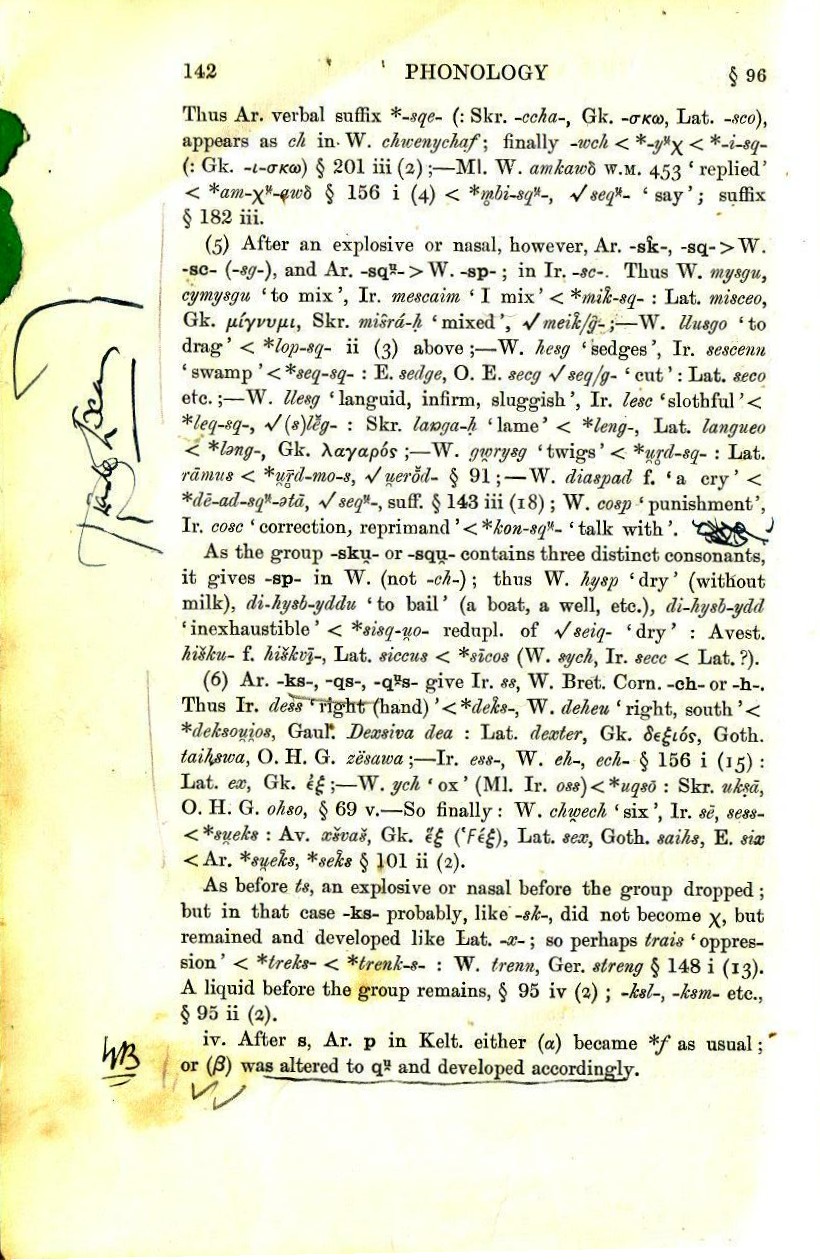 142 PHONOLOGY § 96
Thus Ar. verbal suffix *-sqe- (: Skr. -ccha-, Gk. -σκω, Lat. -sco),
appears as ch in W. chwenychaf; finally -wch < *-yᵘχ < *-i-sq-
(: Gk. -ι-σκω) § 201 iii (2);—Ml. W. amkawẟ W.M. 453 ‘replied’
< *am-χᵘ-awẟ § 156 i (4) < *m̥bi-squ̯-, √sequ̯- ‘say’; suffix
§ 182 iii.
(5) After an explosive or nasal, however, Ar. -sk̑-, -sq- > W.
-sc- (-sg-), and Ar. -squ̯- > W. -sp-; in Ir. -sc-. Thus W. mysgu,
cymysgu ‘to mix’, Ir. mescaim ‘I mix’ < *mik̑-sq- : Lat. misceo,
Gk. μίγνυμι, Skr. miśrá-ḥ ‘mixed’, √meik̑/g̑-;—W. llusgo ‘to
drag’ < *lop-sq- ii (3) above;—W. hesg ‘sedges’, Ir. sescenn
‘swamp’ < *seq-sq- : E. sedge, O. E. secg √seq/g- ‘cut’ : Lat. seco
etc.;—W. llesg ‘languid, infirm, sluggish’, Ir. lesc ‘slothful’ <
*leq-sq-, √(s)lēg- : Skr. laŋga-ḥ ‘lame’ < *leng-, Lat. langueo
< *ləng-, Gk. λαγαρός;—W. gwrysg ‘twigs’ < *u̯r̥d-sq- : Lat.
rāmus < *u̯r̥̄d-mo-s, √u̯erō̆d- § 91;—W. diaspad f. ‘a cry’ <
*dē-ad-squ̯-ətā, √sequ̯-, suff. § 143 iii (18); W. cosp ‘punishment’,
Ir. cosc ‘correction, reprimand’ < *kon-squ̯- ‘talk with’.
As the group -sku̯- or -squ̯- contains three distinct consonants,
it gives -sp- in W. (not -ch-); thus W. hysp ‘dry’ (without
milk), di-hysb-yddu ‘to bail’ (a boat, a well, etc.), di-hysb-ydd
‘inexhaustible’ < *sisq-u̯o- redupl. of √seiq- ‘dry’ : Avest.
hišku- f. hiškvī-, Lat. siccus < *sīcos (W. sych, Ir. secc < Lat. ?).
(6) Ar. -ks-, -qs-, -qu̯s- give Ir. ss, W. Bret. Corn. -ch- or -h-.
Thus Ir. dess ‘right (hand)’ < *dek̑s-, W. deheu ‘right, south’ <
*deksou̯i̯os, Gaul. Dexsiva dea : Lat. dexter, Gk. δεξιός, Goth.
taihswa, O. H. G. zësawa;—Ir. ess-, W. eh-, ech- § 156 i (15) :
Lat. ex, Gk. ἐξ;—W. ych ‘ox’ (Ml. Ir. oss) < *uqsō : Skr. ukṣā,
O. H. G. ohso, § 69 v.—So finally: W. chwech ‘six’, Ir. sē, sess-
< *su̯eks : Av. xšvaš, Gk. ἕξ (ϝέξ), Lat. sex, Goth. saihs, E. six
< Ar. *su̯ek̑s, *sek̑s § 101 ii (2).
As before ts, an explosive or nasal before the group dropped;
but in that case -ks- probably, like -sk-, did not become χ, but
remained and developed like Lat. -x-; so perhaps trais ‘oppres-
sion’ < *treks- < *trenk-s- : W. trenn, Ger. streng § 148 i (13).
A liquid before the group remains, § 95 iv (2); -ksl-, -ksm- etc.,
§ 95 ii (2).
iv. After s, Ar. p in Kelt. either (α) became *f as usual;
NB
or (β) was altered to qu̯ and developed accordingly.